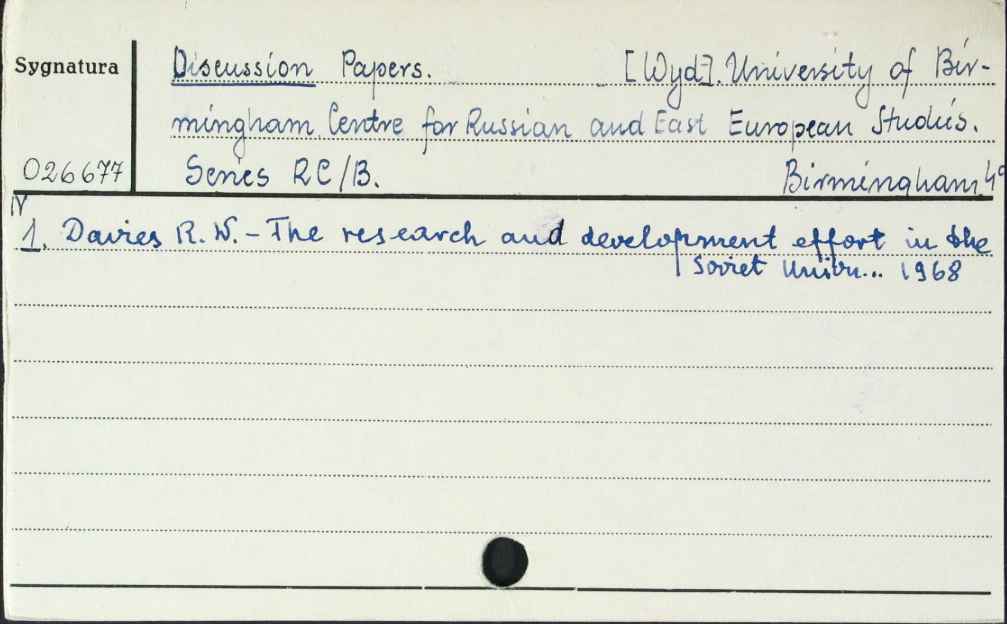 Sygnatura
Discussion Papers. [Wyd]. University of Bir-
mingham Centre for Russian and East European Studies.
026677 Series RC/B. Birmingham 49
N
1. Davies R. W. - The research and development effort in the
Soviet Union... 1968